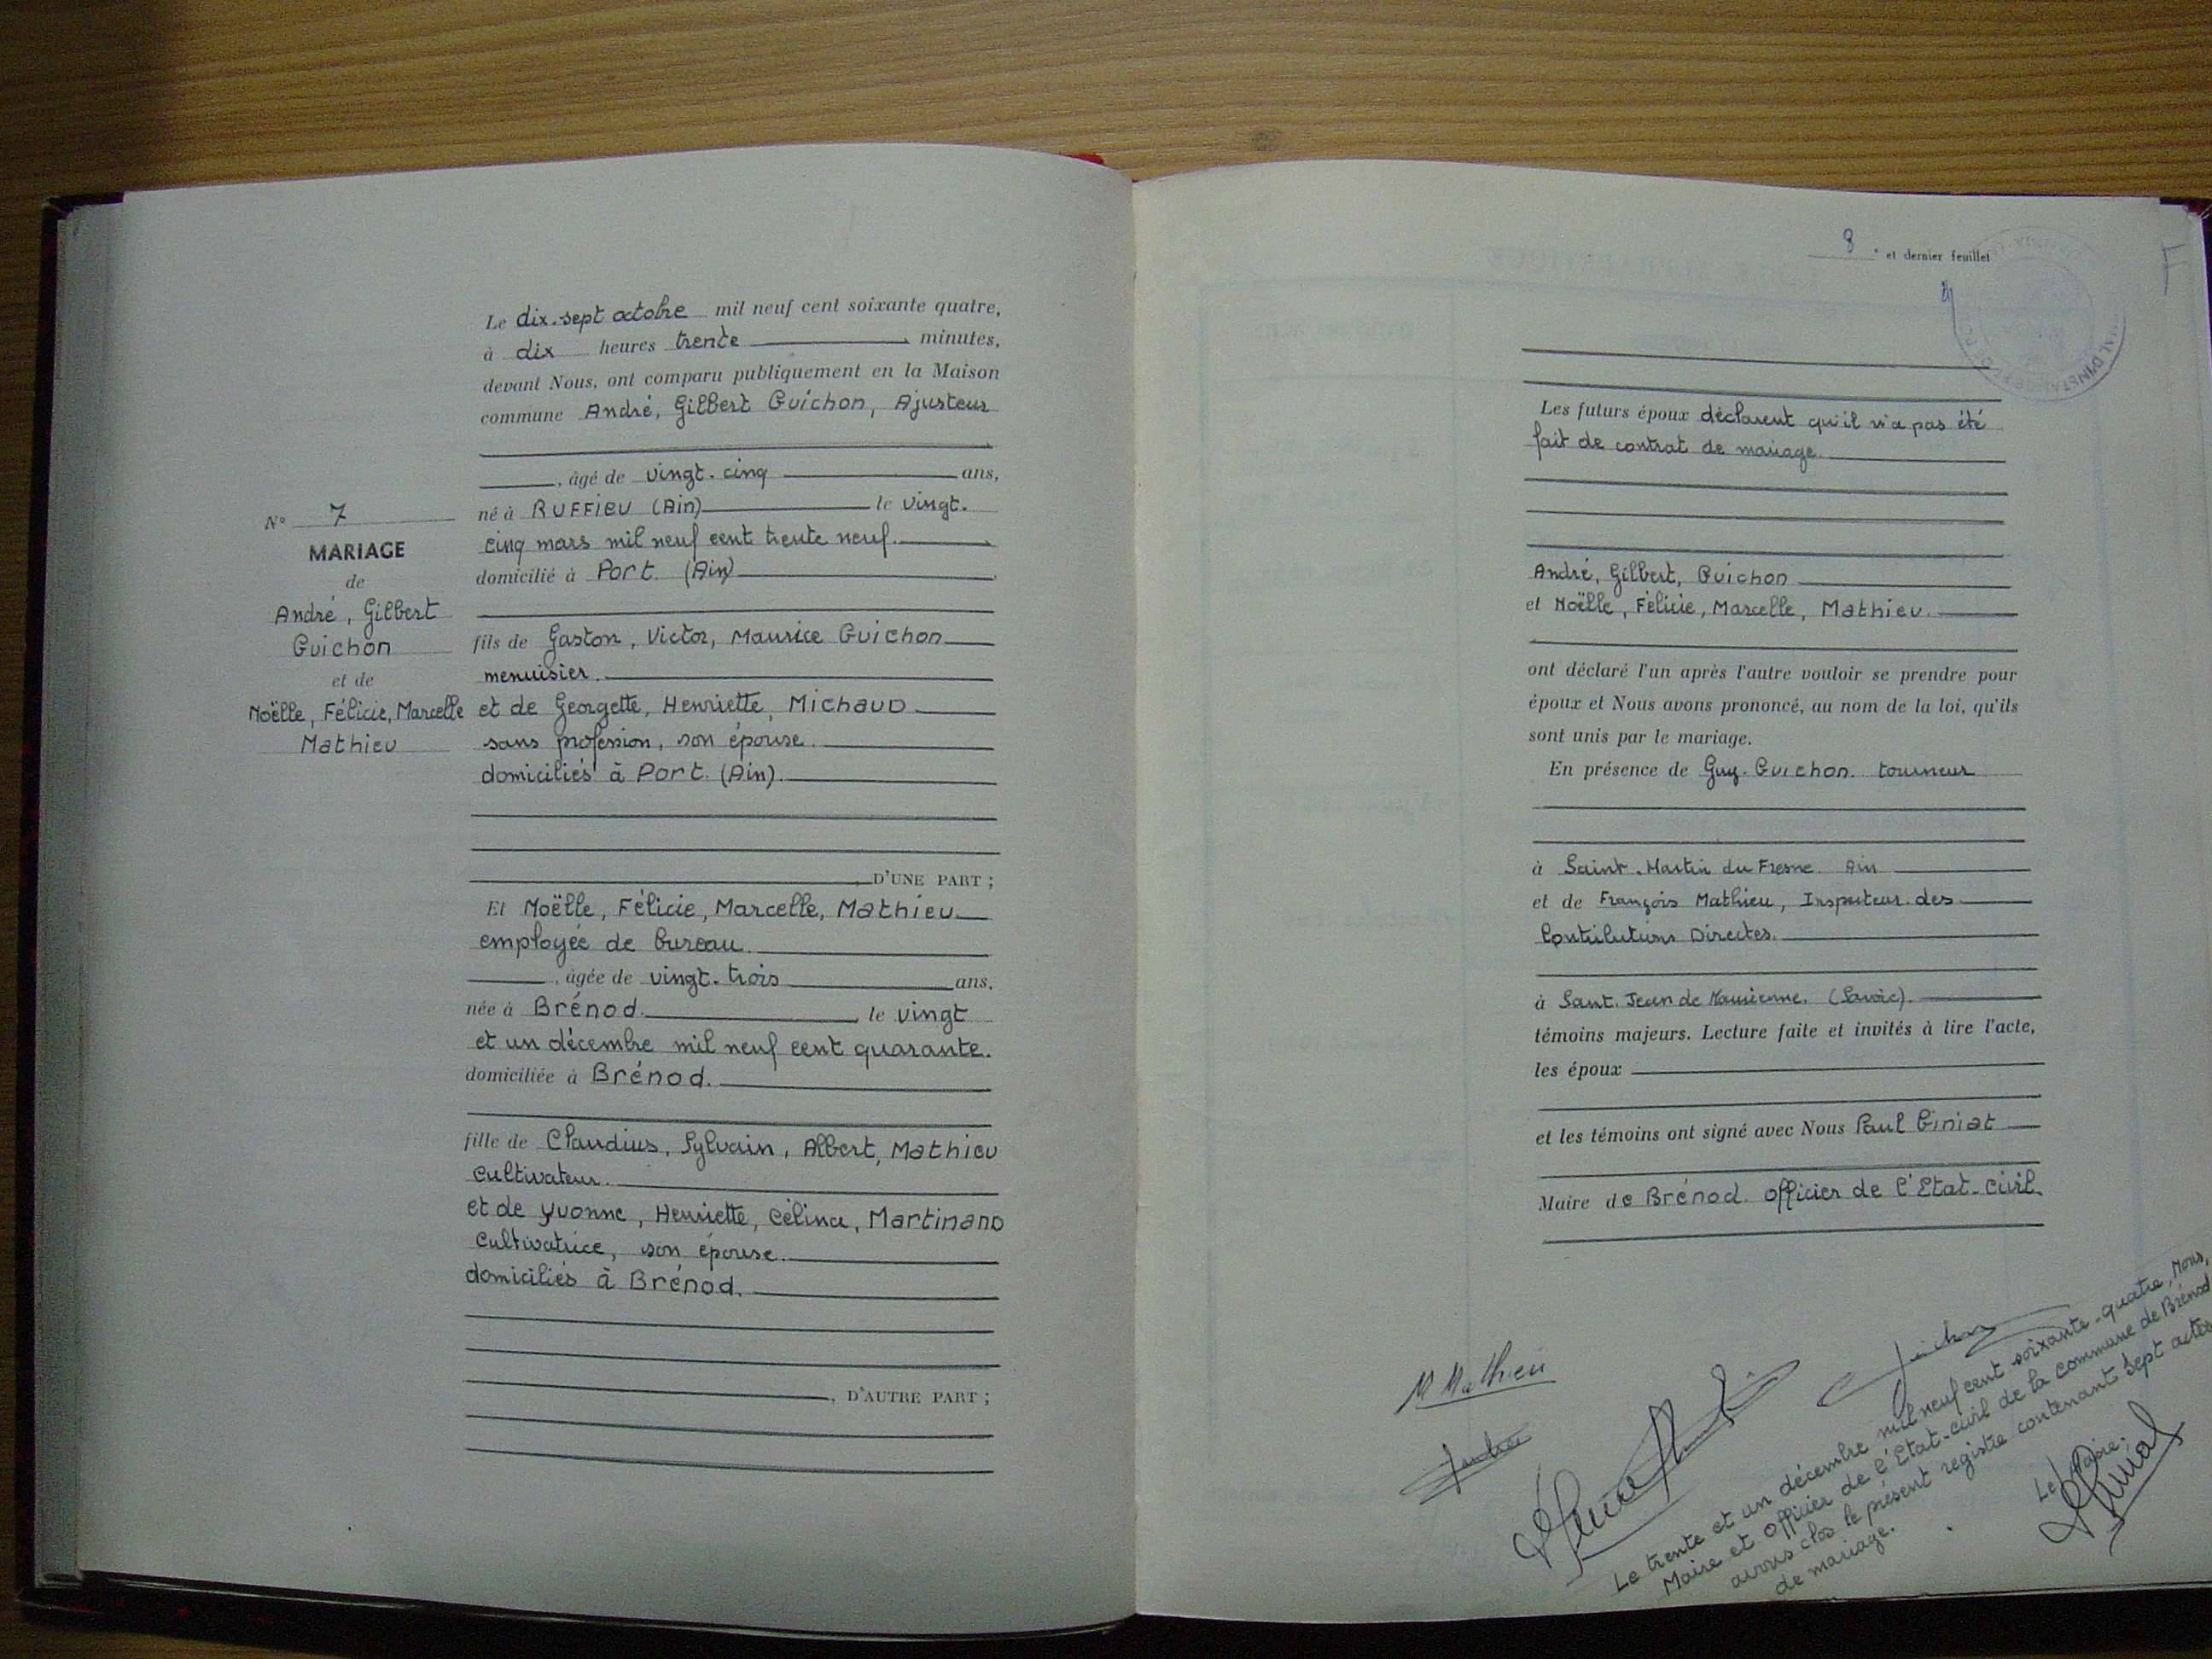 Le dix-sept octobre mil neuf cent soixante quatre,
à dix heures trente minutes,
devant Nous, ont comparu publiquement en la Maison
commune André, Gilbert Guichon, Ajusteur
, âgé de vingt-cinq ans,
né à RUFFIEU (Ain) le vingt-
cinq mars mil neuf cent trente neuf.
domicilié à Port. (Ain)
fils de Gaston, Victor, Maurice Guichon
menuisier.
et de Georgette, Henriette, Michaud
sans profession, son épouse.
domiciliés à Port. (Ain).
D'UNE PART ;
Et Noëlle, Félicie, Marcelle, Mathieu
employée de bureau.
, âgée de vingt-trois ans,
née à Brénod. le vingt
et un décembre mil neuf cent quarante.
domiciliée à Brénod.
fille de Claudius, Sylvain, Albert, Mathieu
cultivateur.
et de Yvonne, Henriette, Célina, Martinand
cultivatrice, son épouse.
domiciliés à Brénod.
, D'AUTRE PART ;
N° 7
MARIAGE
de
André, Gilbert
Guichon
et de
Noëlle, Félicie, Marcelle
Mathieu
8 e et dernier feuillet
Les futurs époux déclarent qu'il n'a pas été
fait de contrat de mariage.
André, Gilbert, Guichon
et Noëlle, Félicie, Marcelle, Mathieu.
ont déclaré l'un après l'autre vouloir se prendre pour
époux et Nous avons prononcé, au nom de la loi, qu'ils
sont unis par le mariage.
En présence de Guy. Guichon. tourneur
à Saint-Martin du Fresne. Ain
et de François Mathieu, Inspecteur des
Contributions Directes.
à Saint. Jean de Maurienne. (Savoie).
témoins majeurs. Lecture faite et invités à lire l'acte,
les époux
et les témoins ont signé avec Nous Paul Giniat
Maire de Brénod. officier de l'Etat-Civil.
M Mathieu
Guichon
Le trente et un décembre mil neuf cent soixante-quatre, Nous,
Maire et Officier de l'Etat-civil de la commune de Brénod
avons clos le présent registre contenant sept actes
de mariage.
Le Maire.